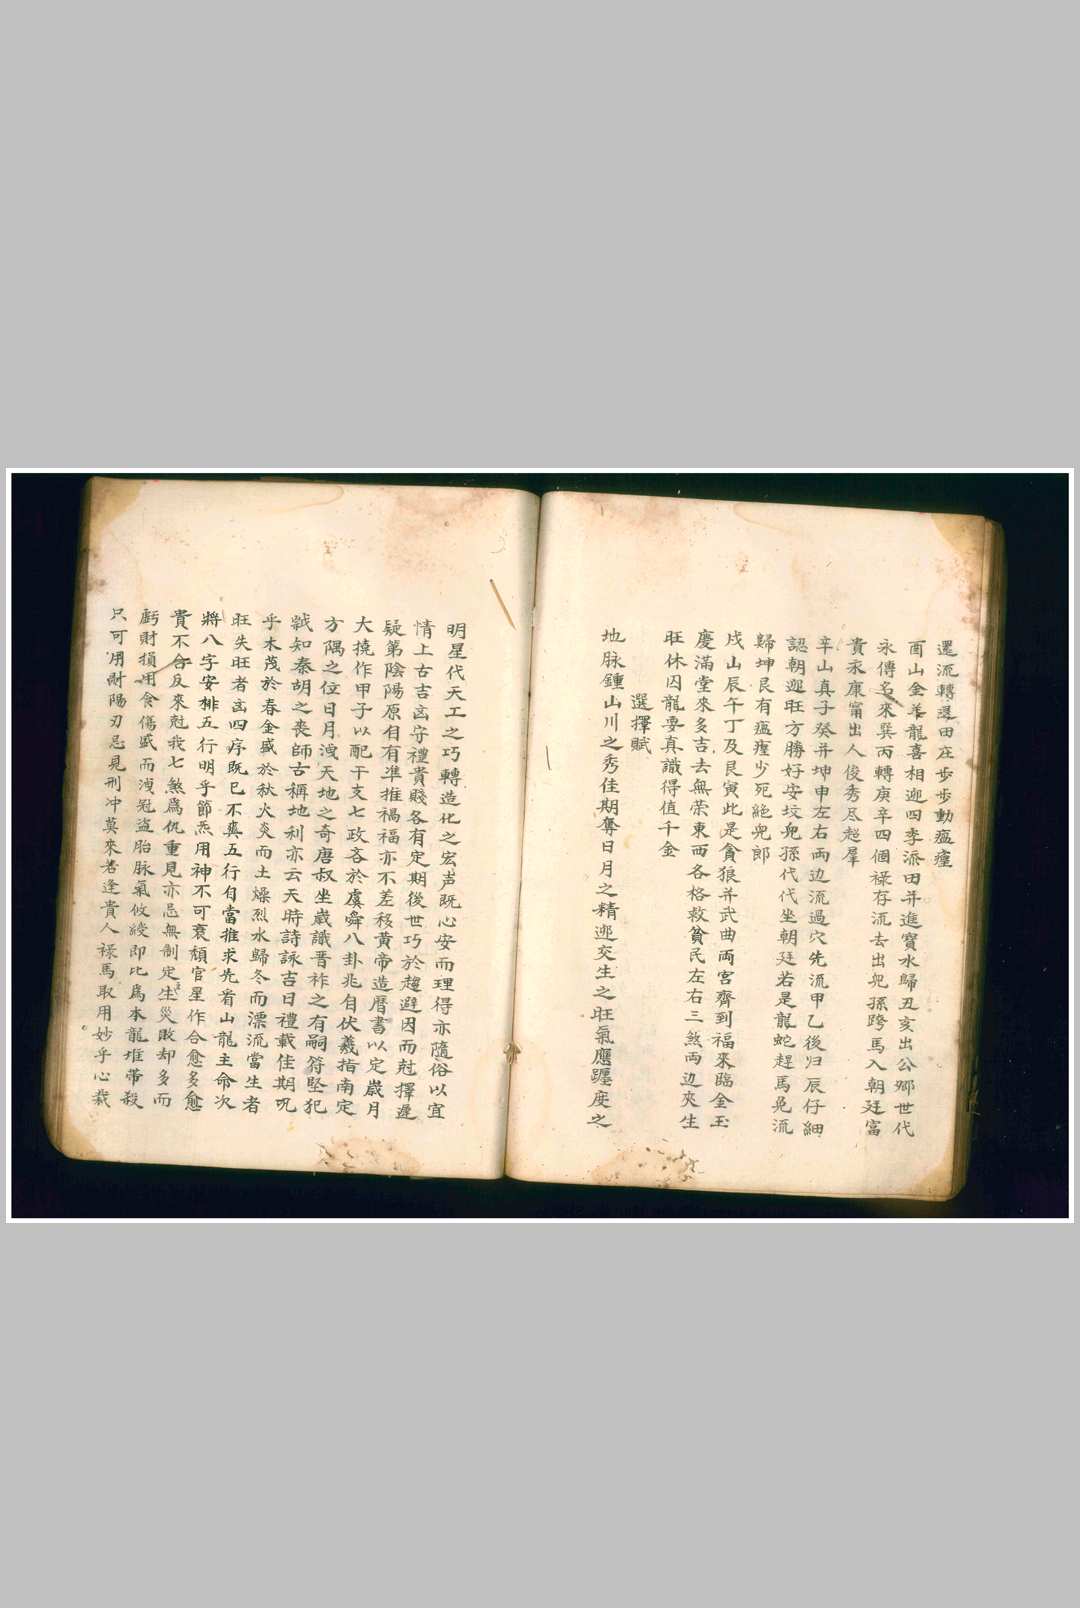 還流轉邊田庄步步動瘟瘟
酉山金羊龍喜相迎四季添田并進寶水歸丑亥出公卿世代
永傳名來巽丙轉庚辛四個祿存流去出兒孫跨馬入朝廷富
貴永康甯出人俊秀尽超羣
辛山真子癸并坤申左右両边流過穴先流甲乙後归辰仔細
認朝迎旺方勝好安坟兒孫代代坐朝廷若是龍蛇趕馬兔流
歸坤艮有瘟瘟少死絕兒郎
戌山辰午丁及艮寅此是貪狼并武曲両宮齊到福來臨金玉
慶滿堂來多吉去無荣東西各格救貧民左右三煞両边夾生
旺休囚龍要真識得值千金
選擇賦
地脉鍾山川之秀佳期奪日月之精迎交生之旺氣應躔度之
明星代天工之巧轉造化之宏声既心安而理得亦隨俗以宜
情上古吉凶守禮貴賤各有定期後世巧於趨避因而尅擇遲
疑第陰陽原自有準推禍福亦不差移黃帝造曆書以定歲月
大撓作甲子以配干支七政吝於虞舜八卦兆自伏羲指南定
方隅之位日月洩天地之奇唐叔坐歲識晋祚之有嗣符堅犯
歲知秦胡之喪師古稱地利亦云天時詩詠吉日禮載佳期况
乎木茂於春金盛於秋火炎而土燥烈水歸冬而漂流當生者
旺失旺者凶四序既已不爽五行自當推求先看山龍主命次
將八字安排五行明乎節炁用神不可衰頹官星作合愈多愈
貴不合反來尅我七煞為仇重見亦忌無制定生災敗却多而
虧財損用食傷盛而洩冠盜胎脉氣攸綫即比為本龍堆帶殺
只可用財陽刃忌見刑冲莫來若逢貴人祿馬取用妙乎心裁